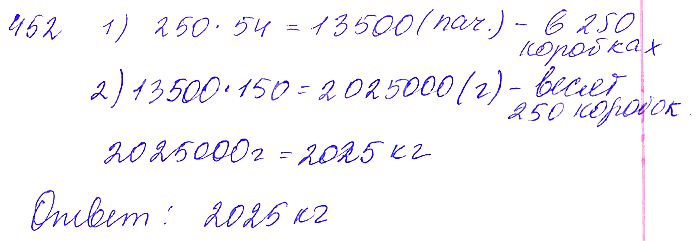 452 1) 250 · 54 = 13500 (пач.) – в 250
коробках
2) 13500 · 150 = 2025000 (г) – весят
250 коробок.
2025000 г = 2025 кг
Ответ: 2025 кг